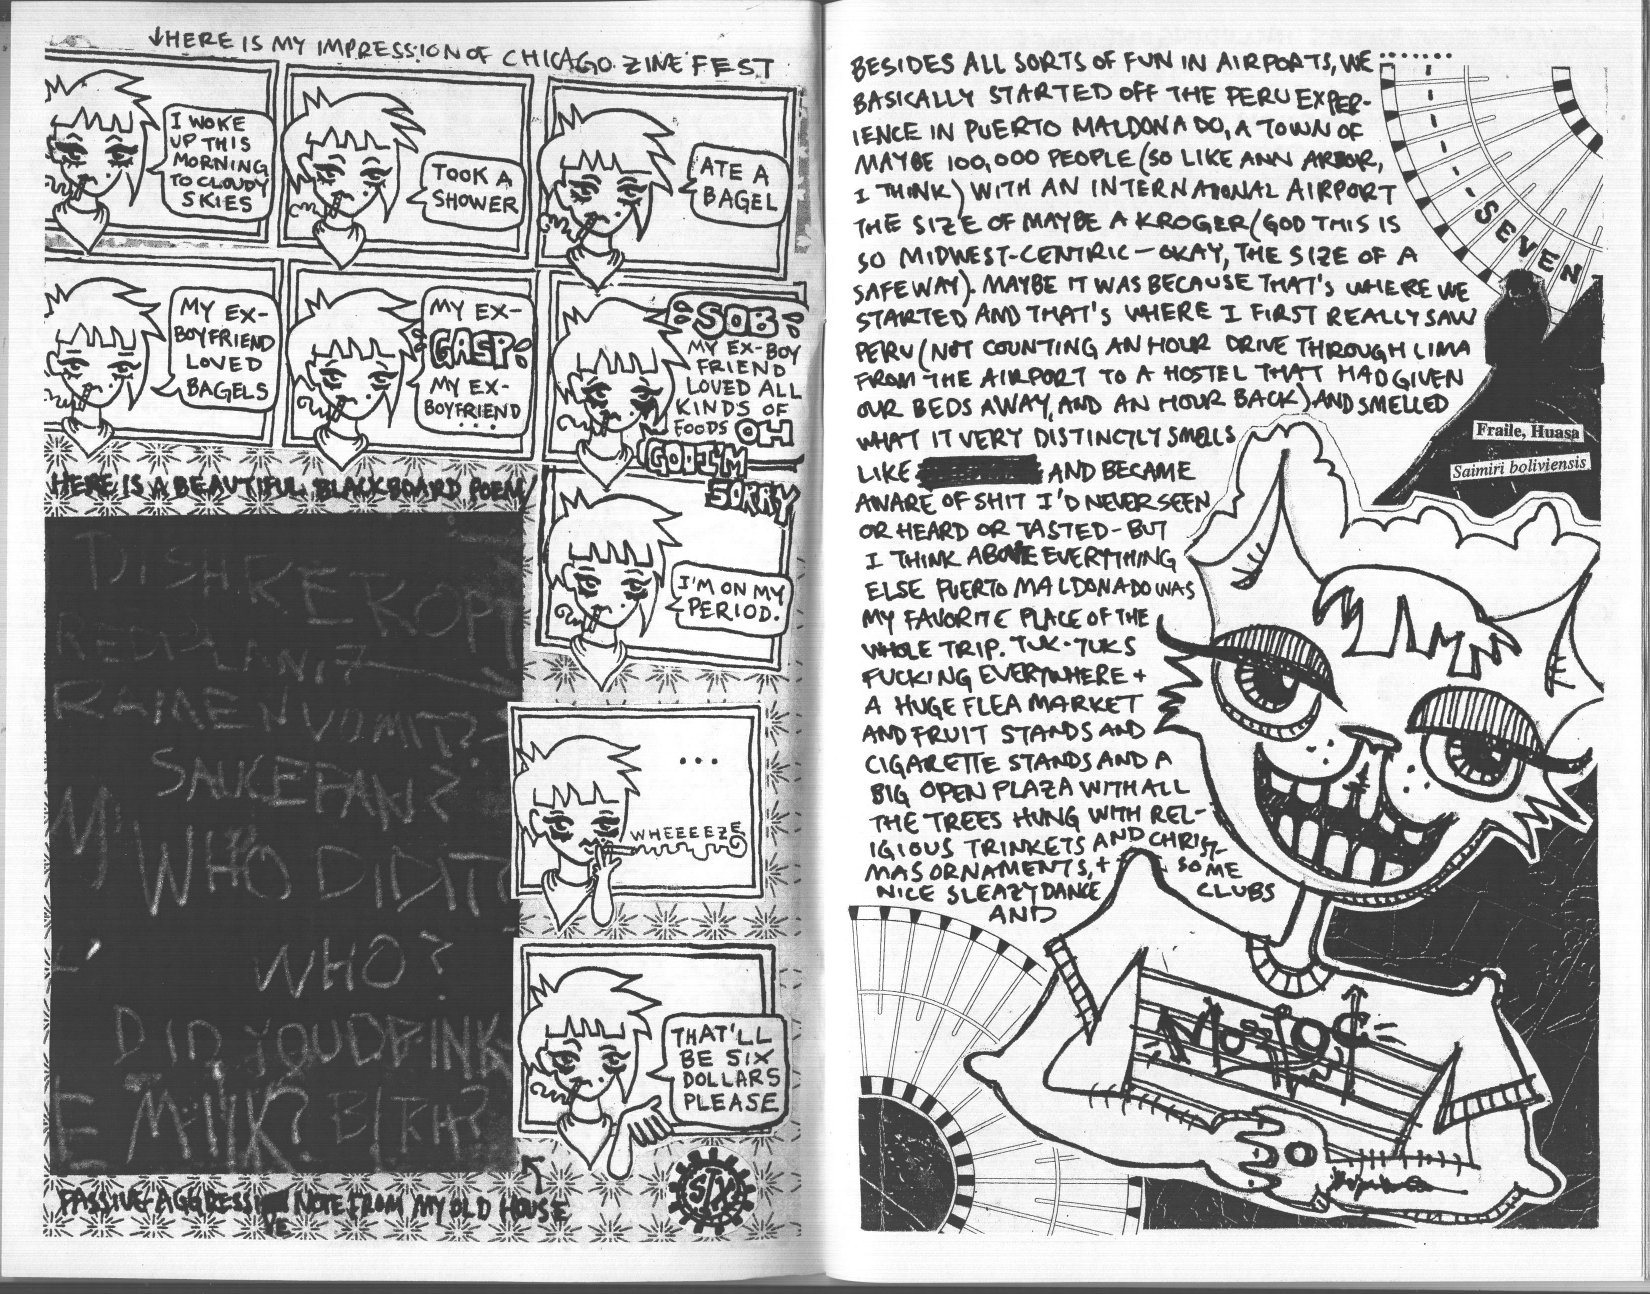 ↓HERE IS MY IMPRESSION OF CHICAGO ZINE FEST
I WOKE
UP THIS
MORNING
TO CLOUDY
SKIES
TOOK A
SHOWER
ATE A
BAGEL
MY EX-
BOYFRIEND
LOVED
BAGELS
MY EX-
GASP
MY EX-
BOYFRIEND
...
SOB
MY EX-BOY
FRIEND
LOVED ALL
KINDS OF
FOODS OH
GOD I'M
SORRY
I'M ON MY
PERIOD.
...
WHEEEEZE
THAT'LL
BE SIX
DOLLARS
PLEASE
HERE IS A BEAUTIFUL BLACKBOARD POEM
RAMEN VOMIT?
WHO DID IT?
WHO?
DID YOU DRINK
MILK?
PASSIVE-AGGRESSIVE NOTE FROM MY OLD HOUSE
SIX
BESIDES ALL SORTS OF FUN IN AIRPORTS, WE
BASICALLY STARTED OFF THE PERU EXPER-
IENCE IN PUERTO MALDONADO, A TOWN OF
MAYBE 100,000 PEOPLE (SO LIKE ANN ARBOR,
I THINK) WITH AN INTERNATIONAL AIRPORT
THE SIZE OF MAYBE A KROGER (GOD THIS IS
SO MIDWEST-CENTRIC — OKAY, THE SIZE OF A
SAFEWAY). MAYBE IT WAS BECAUSE THAT'S WHERE WE
STARTED AND THAT'S WHERE I FIRST REALLY SAW
PERU (NOT COUNTING AN HOUR DRIVE THROUGH LIMA
FROM THE AIRPORT TO A HOSTEL THAT HAD GIVEN
OUR BEDS AWAY, AND AN HOUR BACK) AND SMELLED
WHAT IT VERY DISTINCTLY SMELLS
LIKE AND BECAME
AWARE OF SHIT I'D NEVER SEEN
OR HEARD OR TASTED - BUT
I THINK ABOVE EVERYTHING
ELSE PUERTO MALDONADO WAS
MY FAVORITE PLACE OF THE
WHOLE TRIP. TUK-TUKS
FUCKING EVERYWHERE +
A HUGE FLEA MARKET
AND FRUIT STANDS AND
CIGARETTE STANDS AND A
BIG OPEN PLAZA WITH ALL
THE TREES HUNG WITH REL-
IGIOUS TRINKETS AND CHRIST-
MAS ORNAMENTS, + SOME
NICE SLEAZY DANCE CLUBS
AND
SEVEN
Fraile, Huasa
Saimiri boliviensis